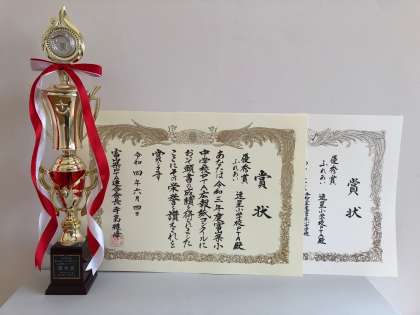 賞状
優秀賞
ふれあい
速星小学校PTA殿
あなたは令和三年度富山県小
中学校PTA広報紙コンクールに
おいて頭書の成績を
ここにその栄誉を讃えこれを
賞します
令和四年六月四日
富山県PTA連合会長
賞状
優秀賞
ふれあい
速星小学校PTA殿